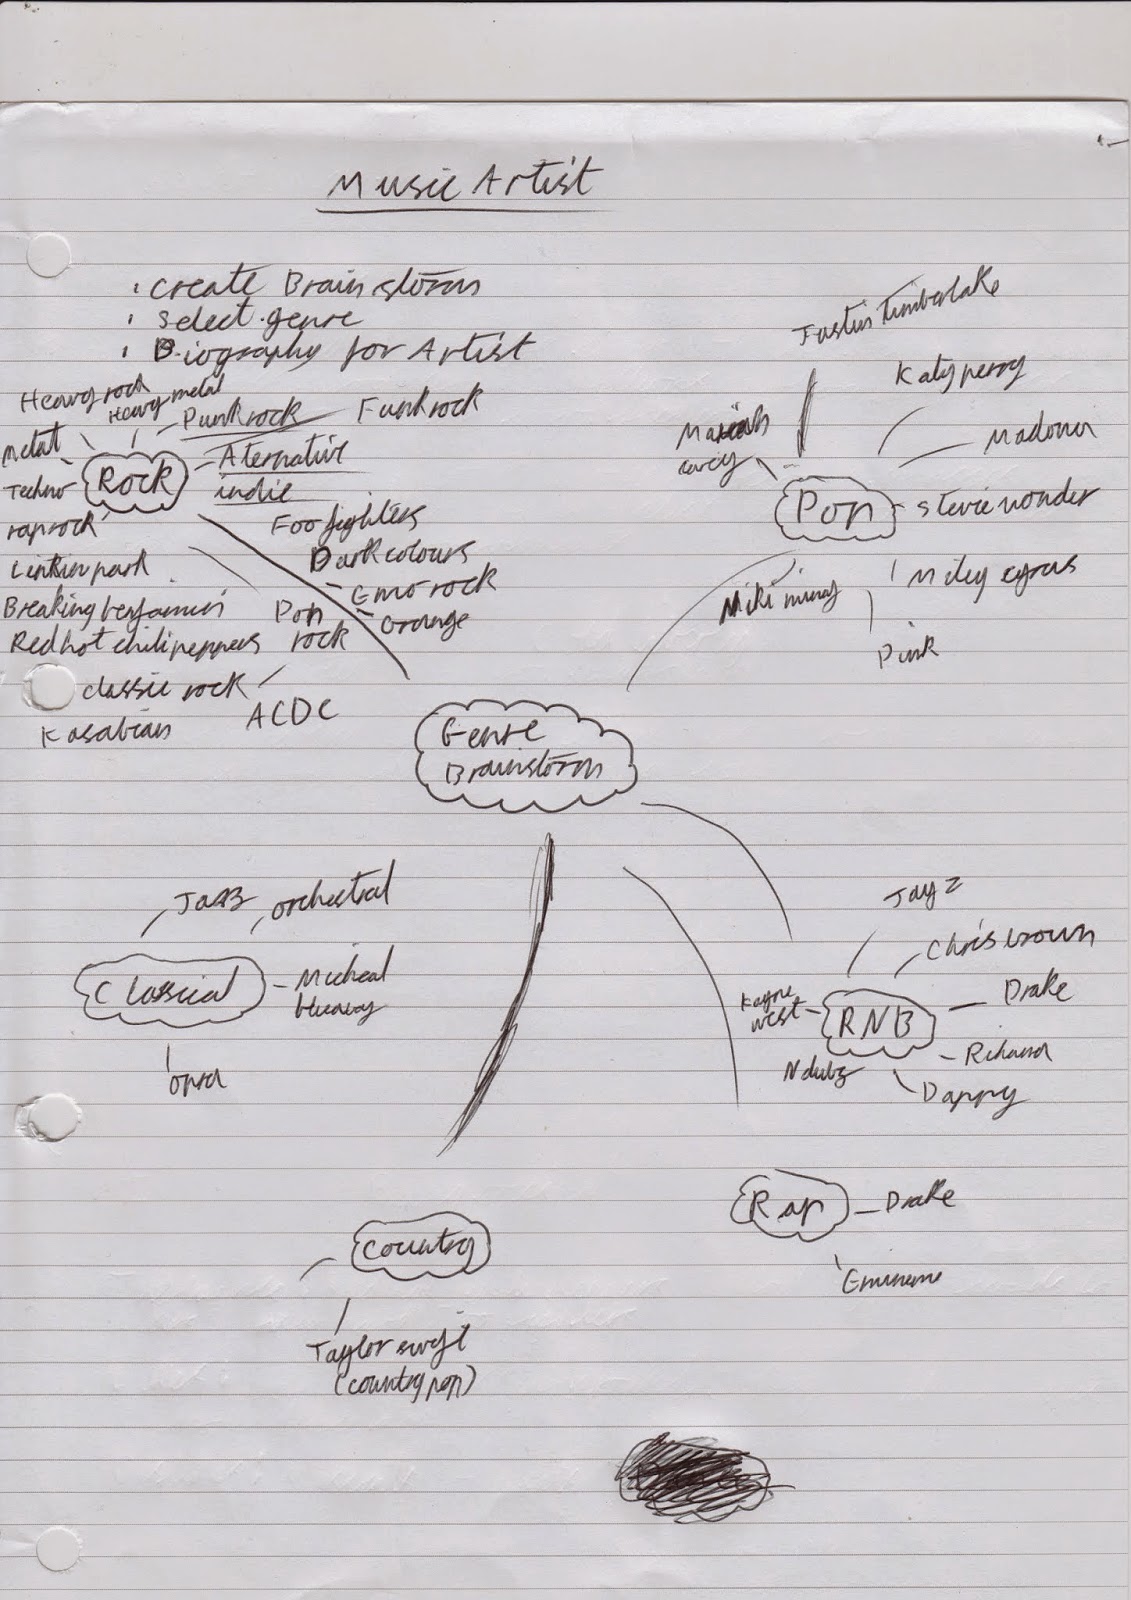 Music Artist
create Brainstorm
select genre
Biography for Artist
Heavy rock
Heavy metal
Punk rock
Funk rock
Metal
Rock
Aternative
indie
Techno
rap rock
Foo fighters
Dark colours
Emo rock
Grunge
Linkin park
Breaking benjamin
Red hot chili peppers
Pop
rock
classic rock
ACDC
Kasabian
Justin Timberlake
Katy perry
Mariah
carey
Madonna
Pop
stevie wonder
Miley cyrus
Niki minaj
Pink
Genre
Brainstorm
Jazz
orchestral
Classical
Micheal
opra
Jay Z
Chris brown
Kayne
west
RNB
Drake
Rihanna
N dubz
Dappy
Rap
Drake
Eminem
Country
Taylor swift
(country pop)